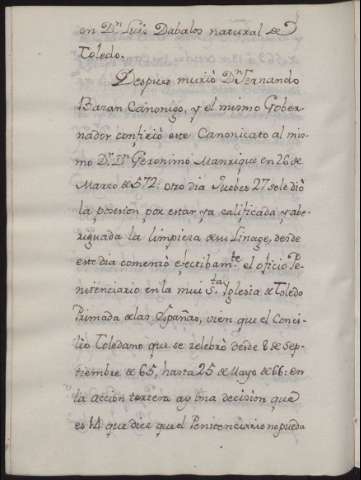 en Dn. Luis Dabalos natural de
Toledo.
Despues murió Dn. Fernando
Bazan Canonigo, y el mismo Gober-
nador confirió este Canonicato al mis-
mo Dr. Dn. Geronimo Manrique en 26 de
Marzo de 572: otro dia Jueves 27 se le dió
la posesion por estar ya calificada y abe-
riguada la limpieza de su Linage, desde
este dia comenzó efectibamte. el oficio Pe-
nitenciario en la mui Sta. Yglesia de Toledo
Primada de las Españas, vien que el Conci-
lio Toledano que se celebró desde 8 de Sep-
tiembre de 65, hasta 25 de Mayo de 66: en
la accion tercera ay una decision que
es 14 que dice que el Penitenciario no pueda